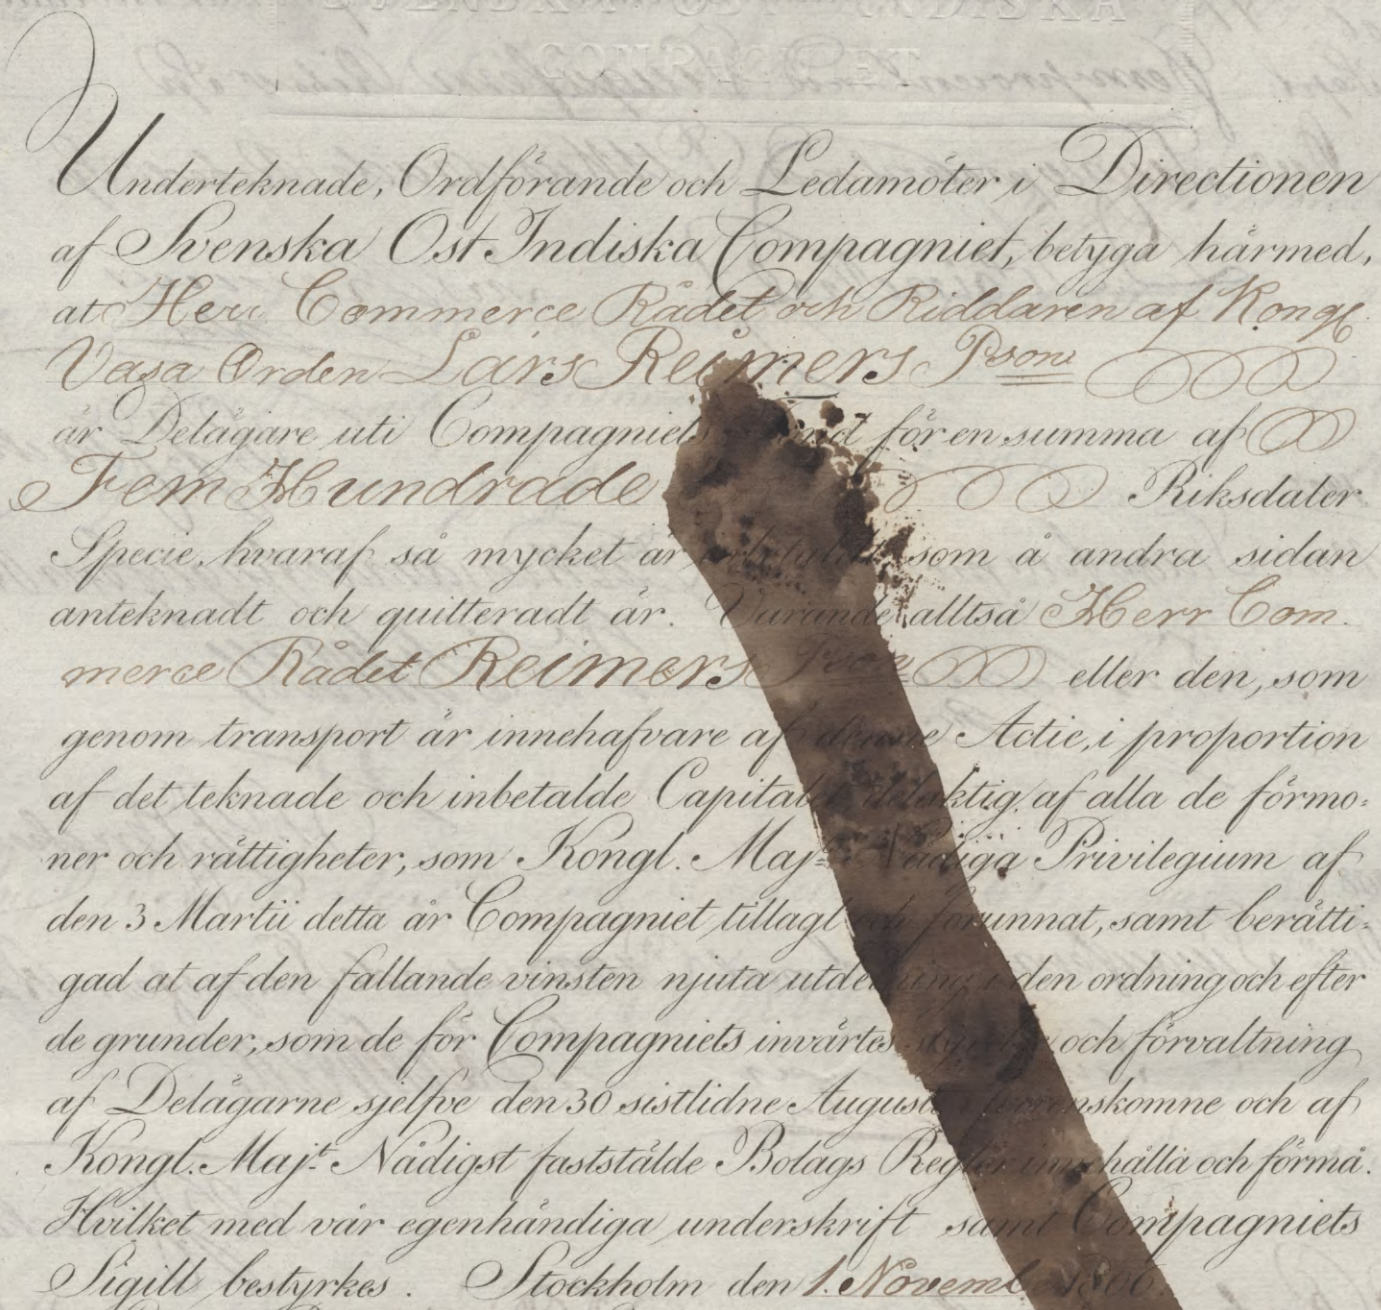 SVENSKA OST INDISKA
COMPAGNIET
Underteknade, Ordförande och Ledamöter i Directionen
af Svenska Ost Indiska Compagniet, betyga härmed,
at Herr Commerce Rådet och Riddaren af Kongl.
Vasa Orden Lars Reimers Pson
är Delägare uti Compagniets för en summa af
Fem Hundrade Riksdaler
Specie, hvaraf så mycket är som å andra sidan
anteknadt och quitteradt är. Varande alltså Herr Com.
merce Rådet Reimers Pson eller den, som
genom transport är innehafvare af denne Actie, i proportion
af det teknade och inbetalde Capitalet delaktig af alla de förmo=
ner och rättigheter, som Kongl. Majts Nådiga Privilegium af
den 3 Martii detta år Compagniet tillagt och förunnat, samt berätti=
gad at af den fallande vinsten njuta utdelning i den ordning och efter
de grunder, som de för Compagniets invärtes och förvaltning
af Delägarne sjelfve den 30 sistlidne Augusti öfverenskomne och af
Kongl. Majt Nådigst faststälde Bolags Regler innehålla och förmå.
Hvilket med vår egenhändiga underskrift samt Compagniets
Sigill bestyrkes. Stockholm den 1. Novemb 1806.